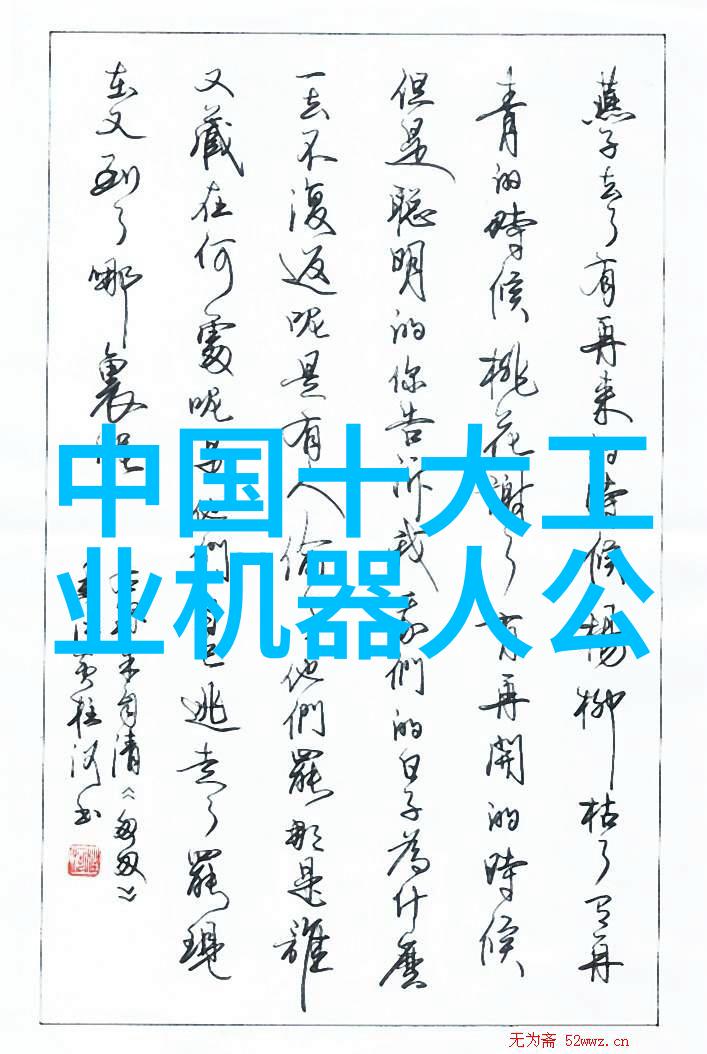 燕子去了有再来的時候楊柳枯了有再
青的時候桃花謝了有再開的時候
但是聪明的你告訴我我們的日子為什麼
一去不復返呢是有人偷了他們罷那是誰
又藏在何處呢是他們自己逃走了罷現
在又到了哪裏呢
朱自清《匆匆》
中国十大工
业机器人公
无为斋 52wwz.cn